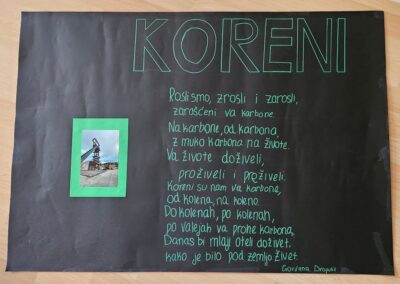 KORENI
Rastismo, zrosli i zarosli,
zarašćeni va karbone.
Na karbone, od karbona,
z muko karbona na živote.
Va živote doživeli,
proživeli i preživeli.
Koreni su nam va karbone,
od kolena, na koleno.
Do kolenah, po kolenah,
po valejah va prohe karbona,
Danas bi mlaji oteli doživet.
kako je bilo pod zemljo živet.
Gordana